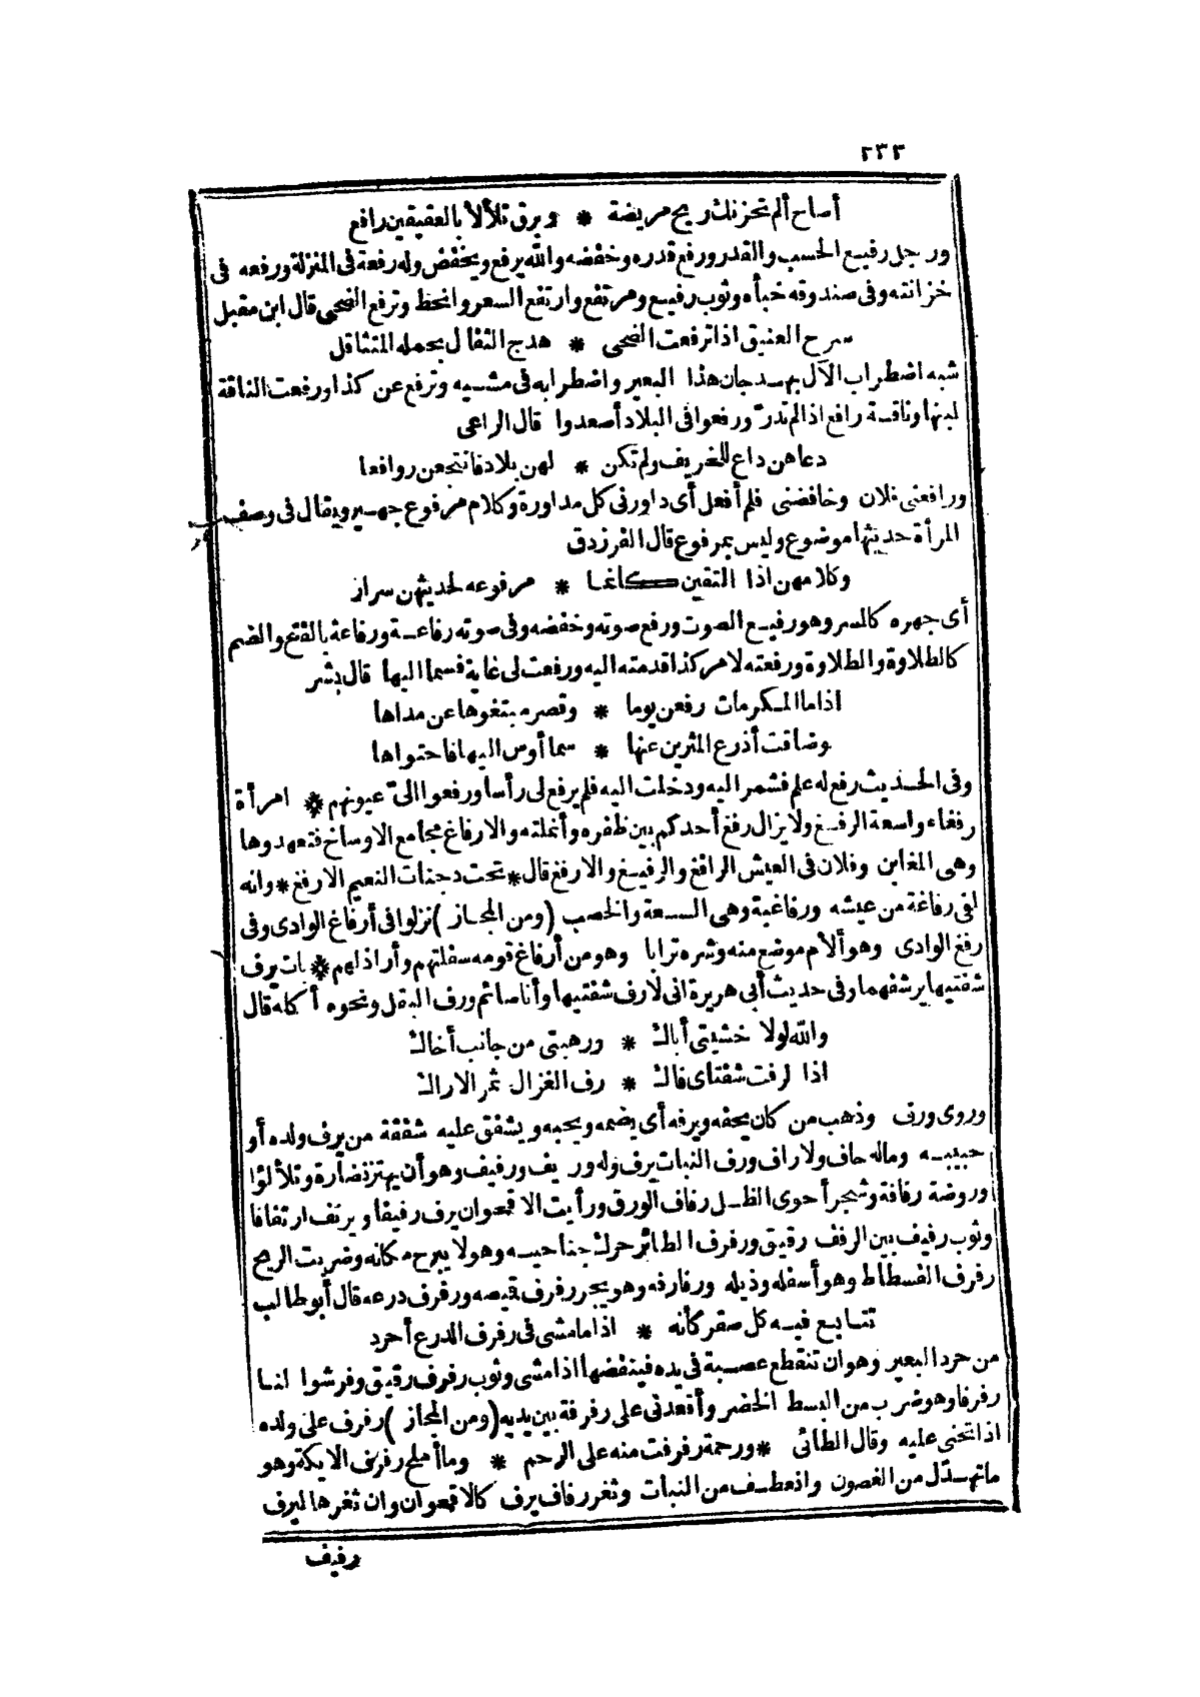 ٢٣٣
أصاح ألم تحزنك ريح مريضة * وبرق تلألأ بالعقيقين رافع
ورجل رفيع الحسب والقدر ورفع قدره وخفضه والله يرفع ويخفض وله رفعة في المنزلة ورفعه في
خزانته وفي صندوقه خبأه وثوب رفيع ومرتفع وارتفع السعر وانحط وترفع الضحى قال ابن مقبل
سرح العنيق اذا ترفعت الضحى * هدج الثفال بحمله المتثاقل
شبه اضطراب الآل بهدجان هذا البعير واضطرابه في مشيه وترفع عن كذا ورفعت الناقة
لبنها وناقة رافع اذا لم تدرّ ورفعوا في البلاد أصعدوا قال الراعي
دعاهن داع للخريف ولم تكن * لهن بلاد فانتجعن روافعا
ورافعنى فلان وخافضنى فلم أفعل أى داورنى كل مداورة وكلام مرفوع جهير ويقال فى وصف
المرأة حديثها موضوع وليس بمرفوع قال الفرزدق
وكلامهن اذا التقين كأنما * مرفوعه لحديثهن سرار
أى جهره كالسر وهو رفيع الصوت ورفع صوته وخفضه وفى صوته رفاعة ورفاعة بالفتح والضم
كالطلاوة والطلاوة ورفعته لامر كذا قدمته اليه ورفعت لى غاية فسما اليها قال بشر
اذا ما المكرمات رفعن يوما * وقصر مبتغوها عن مداها
وضاقت أذرع المثرين عنها * سما أوس اليها فاحتواها
وفى الحديث رفع له علم فشمر اليه ودخلت اليه فلم يرفع لى رأسا ورفعوا الىّ عيونهم * امرأة
رفغاء واسعة الرفغ ولا يزال رفغ أحدكم بين ظفره وأنملته والارفاغ مجامع الاوساخ فتعهدوها
وهى المغابن وفلان فى العيش الرافغ والرفيغ والارفغ قال * تحت دجنات النعيم الارفغ * وانه
لفى رفاغة من عيشه ورفاغية وهى السعة والخصب (ومن المجاز) نزلوا فى أرفاغ الوادى وفى
رفغ الوادى وهو ألأم موضع منه وشره ترابا وهو من أرفاغ قومه سفلتهم وأراذلهم * بات يرف
شفتيها يرشفهما وفى حديث أبى هريرة انى لارف شفتيها وأنا صائم ورف البقل ونحوه أكله قال
والله لولا خشيتى أباك * ورهبتى من جانب أخاك
اذا لرفت شفتاى فاك * رف الغزال ثمر الاراك
وروى ورق وذهب من كان يحفه ويرفه أى يضمه ويحبه ويشفق عليه شفقة من يرف ولده أو
حبيبه وماله حاف ولا راف ورف النبات يرف وله وريف ورفيف وهو أن يهتز نضارة وتلألؤا
وروضة رفافة وشجر أحوى الظل رفاف الورق ورأيت الاقحوان يرف رفيفا ويرتف ارتفافا
وثوب رفيف بين الرفف رقيق ورفرف الطائر حرك جناحيه وهو لا يبرح مكانه وضربت الريح
رفرف الفسطاط وهو أسفله وذيله ورفارفه وهو يجر رفرف قيصه ورفرف درعه قال أبو طالب
تتابع فيه كل صقر كأنه * اذا ما مشى فى رفرف الدرع أحرد
من حرد البعير وهو ان تنقطع عصبة فى يده فينفضها اذا مشى وثوب رفرف رقيق وفرشوا لنا
رفرفا وهو ضرب من البسط الخضر وأقعدنى على رفرفة بين يديه (ومن المجاز) رفرف على ولده
اذا تحنى عليه وقال الطائى * ورحمة رفرفت منه على الرحم * وما أملح رفرف الايكة وهو
ما تهدّل من الغصون وانعطف من النبات وثغر رفاف يرف كالاقحوان وان ثغرها ليرف
رفيف